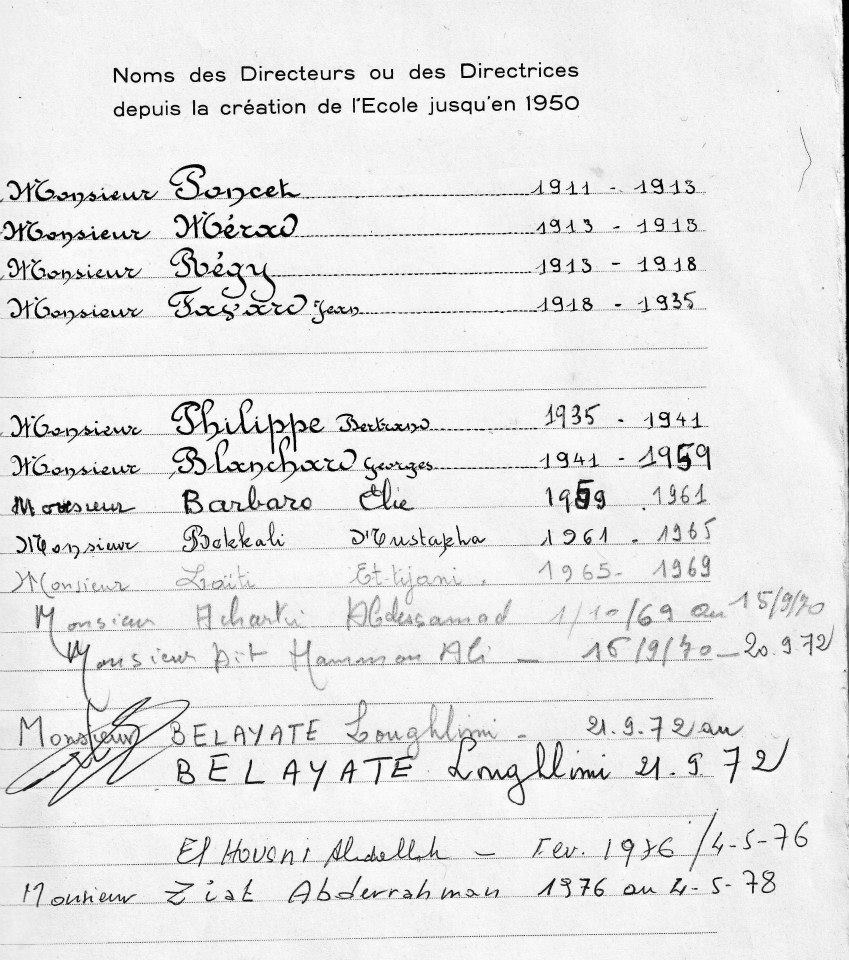 Noms des Directeurs ou des Directrices
depuis la création de l'Ecole jusqu'en 1950
Monsieur Poncet 1911 - 1913
Monsieur Mérad 1913 - 1913
Monsieur Régy 1913 - 1918
Monsieur Fayard Jean 1918 - 1935
Monsieur Philippe Bertrand 1935 - 1941
Monsieur Blanchard Georges 1941 - 1959
Monsieur Barbaro Élie 1959 1961
Monsieur Bekkali Mustapha 1961 - 1965
Monsieur Laïti Et-tijani. 1965 - 1969
Monsieur Acharki Abdessamad 1/10/69 au 15/9/70
Monsieur Aït Hammou Ali - 16/9/70 - 20.9.72
Monsieur BELAYATE Loughlimi - 21.9.72 au
BELAYATE Loughlimi 21.9.72
El Houari Abdellah - Fev. 1976 / 4-5-76
Monsieur Ziat Abderrahman 1976 au 4-5-78